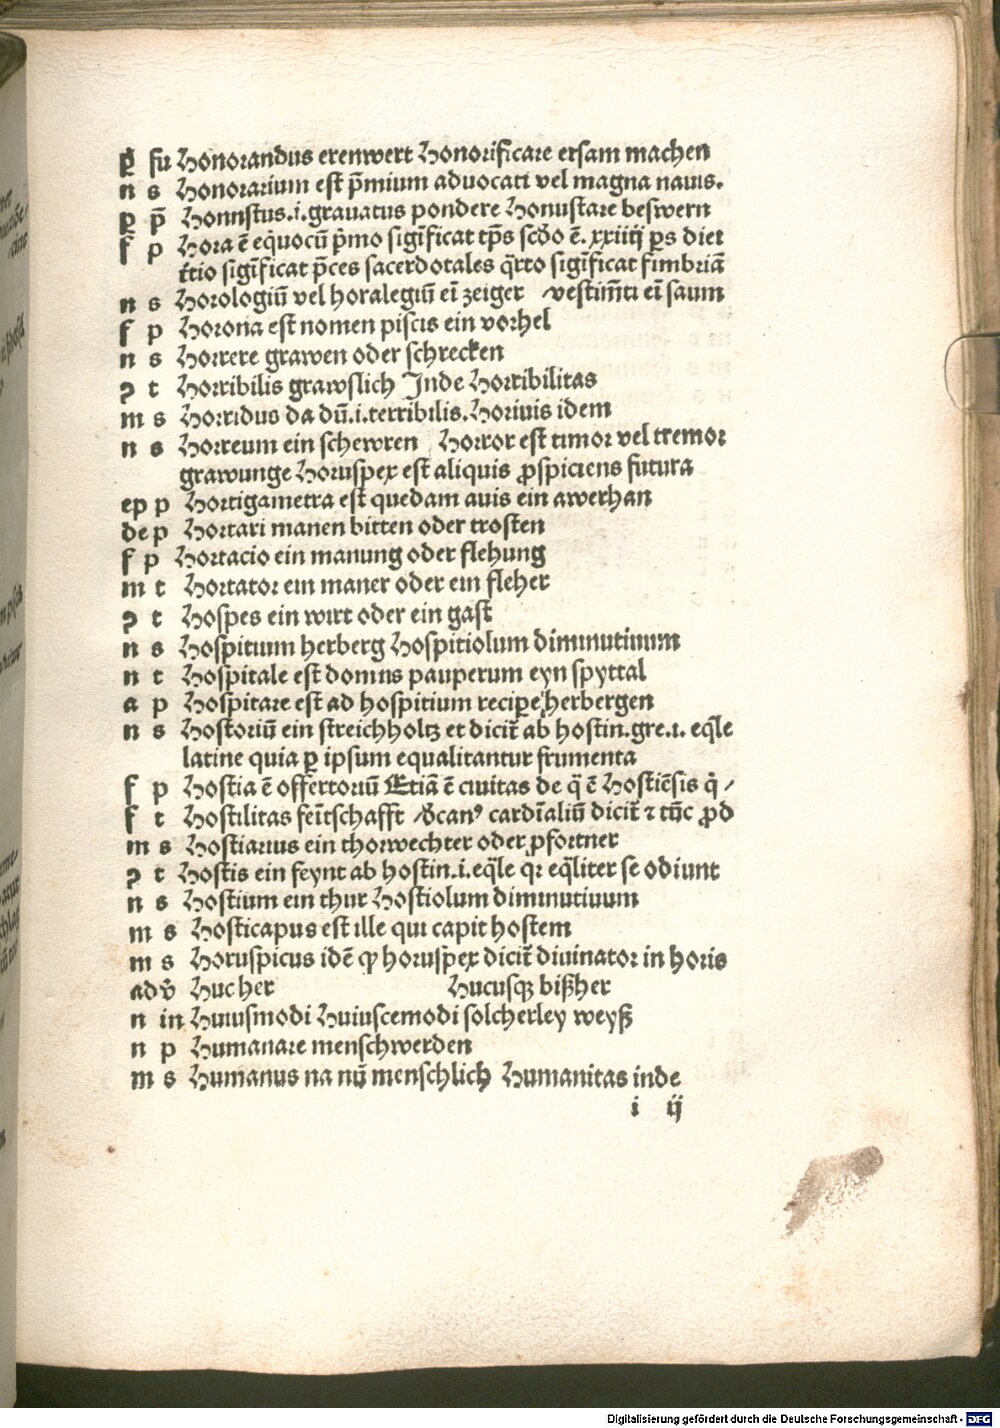 ꝑ fu Honorandus erenwert Honorificare ersam machen
n s Honorarium est p̄mium advocati vel magna nauis.
ꝑ p̄ Honnstus.i.grauatus pondere Honustare beswern
f p Hora ē eq̇uocū p̄mo sigīficat tp̄s scd̄o ē. xxiiij ꝑs diei
t̄tio sigīficat p̄ces sacerdotales q̄rto sigīficat fimbriā
n s Horologiū vel horalegiū eī zeiger vestim̄ti eī saum
f p Horona est nomen piscis ein vorhel
n s Horrere grawen oder schrecken
ꝯ t Horribilis grawslich Inde Horribilitas
m s Horridus da dū.i.terribilis.Horiuis idem
n s Horreum ein schewren Horror est timor vel tremor
grawunge Horuspex est aliquis ꝓspiciens futura
ep p Hortigametra est quedam auis ein awerhan
de p Hortari manen bitten oder trosten
f p Hortacio ein manung oder flehung
m t Hortator ein maner oder ein fleher
ꝯ t Hospes ein wirt oder ein gast
n s Hospitium herberg Hospitiolum diminutiuum
n t Hospitale est domns pauperum eyn spyttal
a p Hospitare est ad hospitium recipe herbergen
n s Hostoriū ein streichholtz et dicit̄ ab hostin.gre.i. eq̄le
latine quia ꝑ ipsum equalitantur frumenta
f p Hostia ē offertoriū Etiā ē ciuitas de q̄ ē Hostiēsis q̇ /
f t Hostilitas feītschafft /decanꝰ cardīaliū dicit̄ ⁊ tūc ꝓd
m s Hostiarius ein thorwechter oder pfortner
ꝯ t Hostis ein feynt ab hostin.i.eq̄le qꝛ eq̄liter se odiunt
n s Hostium ein thur Hostiolum diminutiuum
m s Hosticapus est ille qui capit hostem
m s Horuspicus idē ꝙ horuspex dicit̄ diuinator in horis
adv̄ Huc her Hucusqꝫ bißher
n in Huiusmodi Huiuscemodi solcherley weyß
n p Humanare menschwerden
m s Humanus na nū menschlich Humanitas inde
i ij
Digitalisierung gefördert durch die Deutsche Forschungsgemeinschaft - DFG